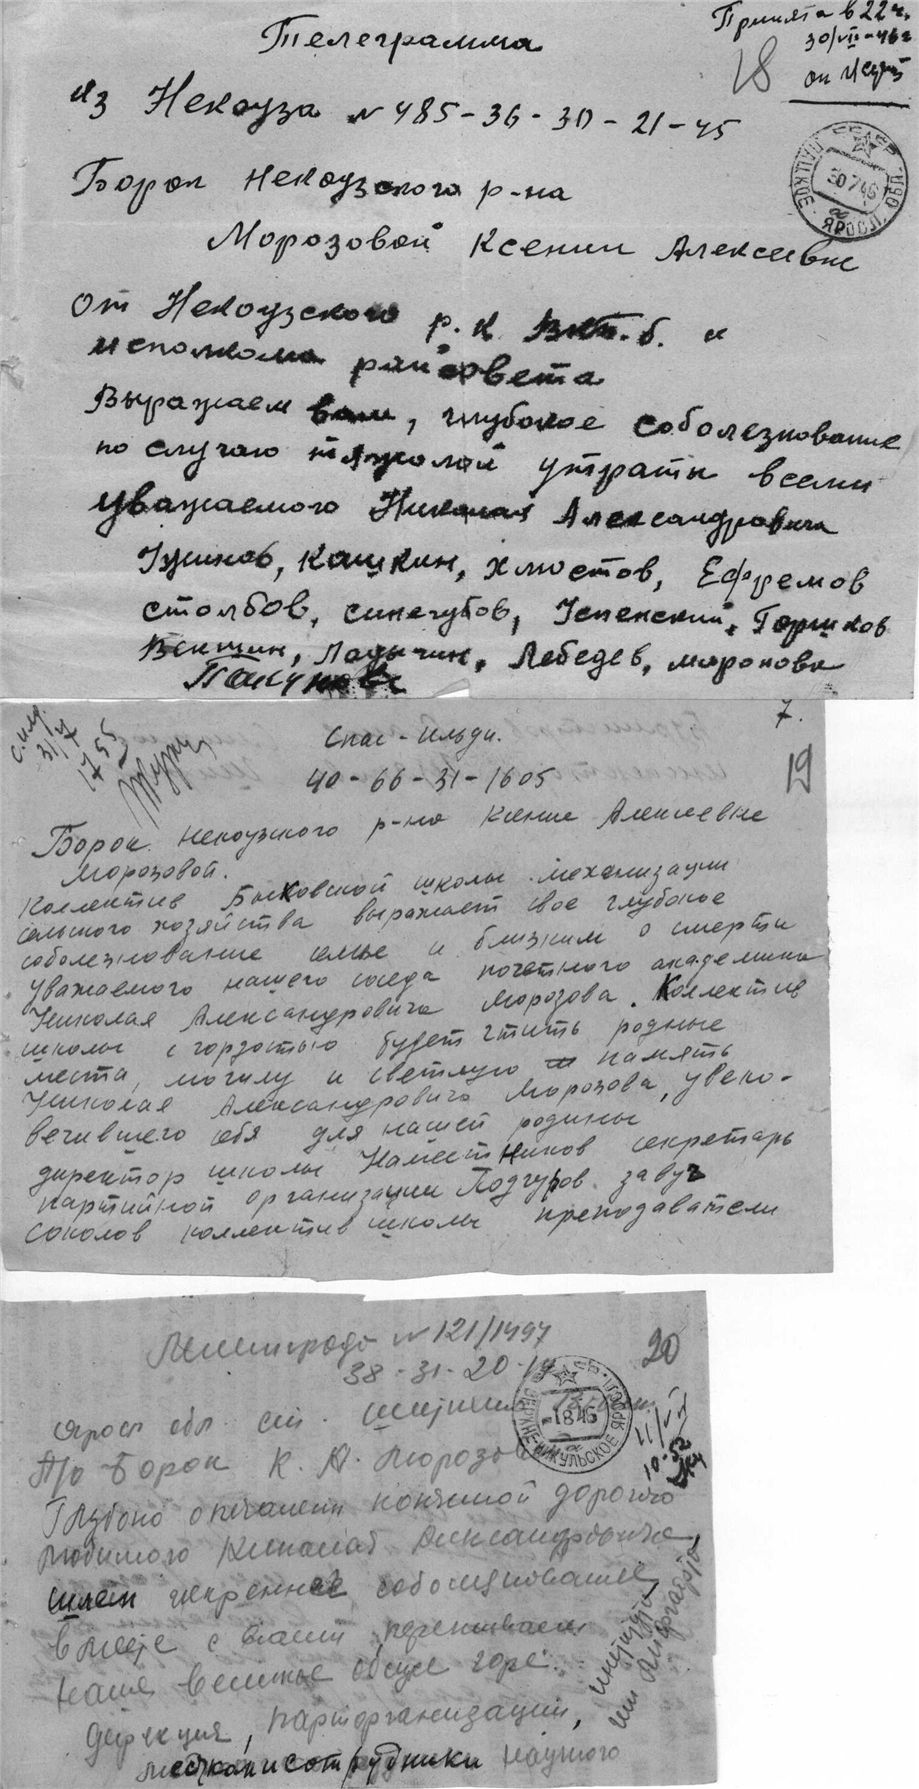 Телеграмма
Принята в 22 ч.
30/VII-46 г
18
из Некоуза № 485-36-30-21-45
Борок Некоузского р-на
Морозовой Ксении Алексеевне
30 7 46
ЯРОСЛ. ОБЛ.
от Некоузского р.к ВКП.б. и
исполкома райсовета
Выражаем вам, глубокое соболезнование
по случаю тяжолой утраты всеми
уважаемого Николая Александровича
Гужинов, Кашкин, Хлюстов, Ефремов
столбов, синегубов, Успенский, Горшков
Векшин, Ладычин, Лебедев, миронова
7.
Спас-Ильди.
31/7
1755
19
40-66-31-1605
Борок Некоузского р-на Ксение Алексеевне
Морозовой.
Коллектив Быковской школы механизации
сельского хозяйства выражает свое глубокое
соболезнование семье и близким о смерти
уважаемого нашего соседа почетного академика
Николая Александровича Морозова. Коллектив
школы с гордостью будет чтить родные
места, могилу и светлую память
Николая Александровича Морозова, увеко-
вечившего себя для нашей родины
директор школы Наместников секретарь
партийной организации Подгуров завуч
Соколов коллектив школы преподаватели
Ленинграда № 121/1497
20
38-31-20-14
Яросл обл. ст. Шестихино
1 8 46
10-52
П/о Борок К. А. Морозовой
Глубоко опечалены кончиной дорогого
любимого Николая Александровича
шлем искреннее соболезнование
вместе с вами переживаем
наше великое общее горе.
Дирекция, парторганизация,
местком и сотрудники научного
института
им Лесгафта